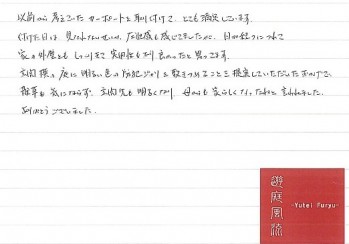 以前から考えていたカーポートを取り付けて、とても満足しています。
付けた日は、見なれないせいか、圧迫感も感じてましたが、日が経つにつれて
家の外壁ともしっくりきて実用性もあり良かったと思ってます。
玄関横の庭に明るい色の防犯じゃりを敷きつめることを提案していただいたおかげで、
雑草も気にならず、玄関先も明るくなり、母からも家らしくなったねと言われました。
ありがとうございました。
遊庭風流
-Yutei Furyu-